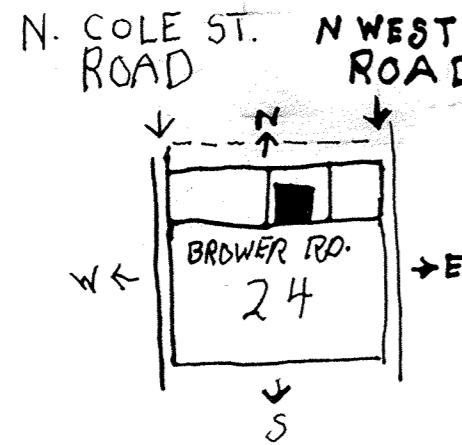 N. COLE ST.
ROAD
N WEST
ROAD
N
W
E
BROWER RD.
24
S